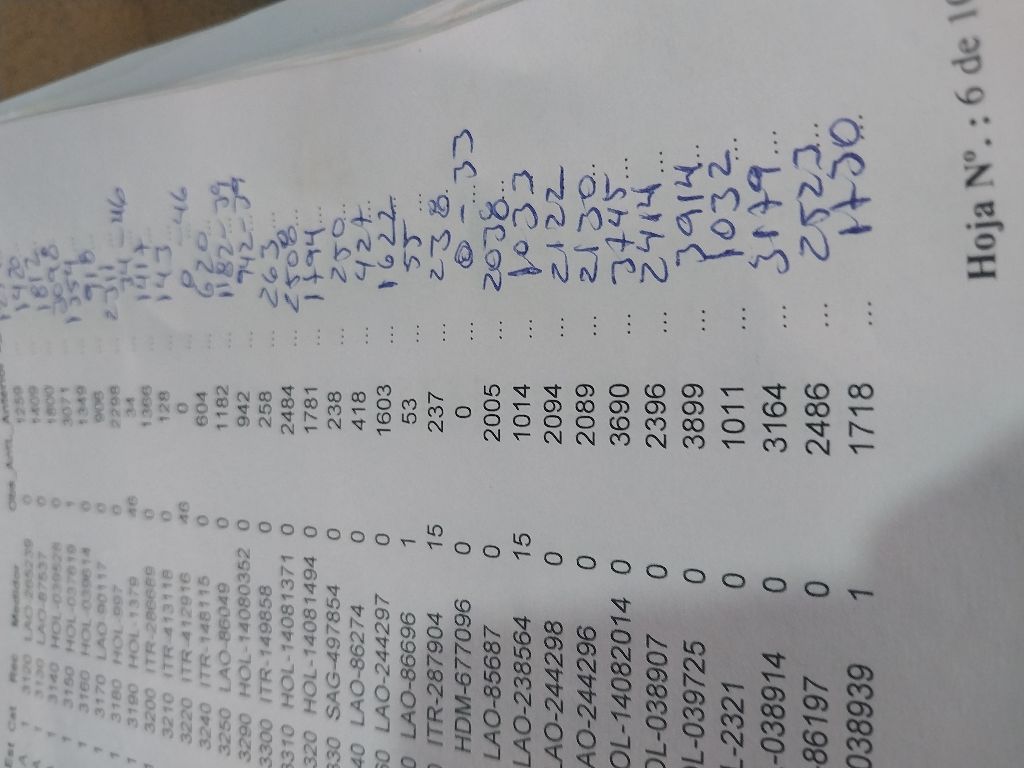 Est Cat Rec Medidor Obs_Ant_ Anterior
A 1 3120 LAO-295239 0 1259 ...
A 1 3130 LAO-87537 0 1409 ... 1420
1 3140 HOL-039528 0 1800 ... 1812
1 3150 HOL-037819 1 3071 ... 3098
1 3160 HOL-039614 0 1349 ... 1354
1 3170 LAO-90117 0 908 ... 916
1 3180 HOL-997 0 2298 ... 2311
1 3190 HOL-1379 46 34 ... 34 -46
3200 ITR-286689 0 1366 ... 1417
3210 ITR-413118 0 128 ... 143
3220 ITR-412916 46 0 ... 0 -46
3240 ITR-148115 0 604 ... 620
3250 LAO-86049 0 1182 ... 1182-39
3290 HOL-14080352 0 942 ... 942-39
3300 ITR-149858 0 258 ... 263
3310 HOL-140811371 0 2484 ... 2508
320 HOL-14081494 0 1781 ... 1794
330 SAG-497854 0 238 ... 250
40 LAO-86274 0 418 ... 427
50 LAO-244297 0 1603 ... 1622
0 LAO-86696 1 53 ... 55
0 ITR-287904 15 237 ... 238
HDM-677096 0 0 ... 0-33
LAO-85687 0 2005 ... 2038
LAO-238564 15 1014 ... 1033
LAO-244298 0 2094 ... 2122
AO-244296 0 2089 ... 2130
OL-14082014 0 3690 ... 3745
OL-038907 0 2396 ... 2414
L-039725 0 3899 ... 3914
L-2321 0 1011 ... 1032
-038914 0 3164 ... 3179
86197 0 2486 ... 2523
038939 1 1718 ... 1730
Hoja Nº. : 6 de 10